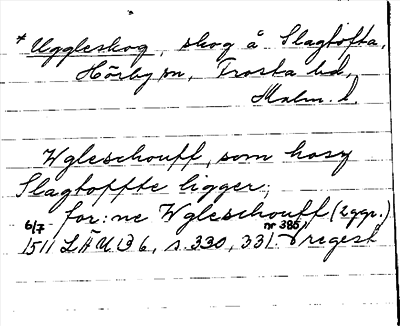 * Uggleskog, skog å Slagtofta,
Hörby sn, Frosta hd,
Malm. l.
Wgleschouff, som hosz
Slagtoffte ligger,
for:ne Wgleschouff (2 ggr.)
6/7 1511 LÄU 136, s. 330, 331. nr 385 regest